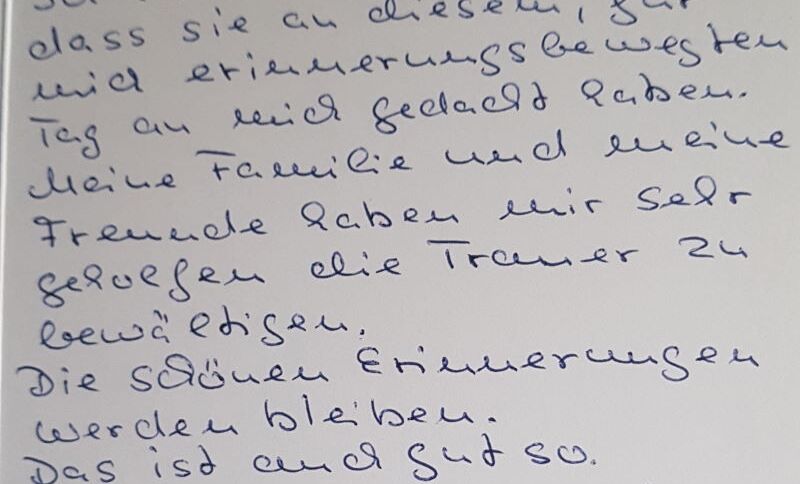 dass sie an diesem, für
mich erinnerungsbewegten
Tag an mich gedacht haben.
Meine Familie und meine
Freunde haben mir sehr
geholfen die Trauer zu
bewältigen.
Die schönen Erinnerungen
werden bleiben.
Das ist auch gut so.